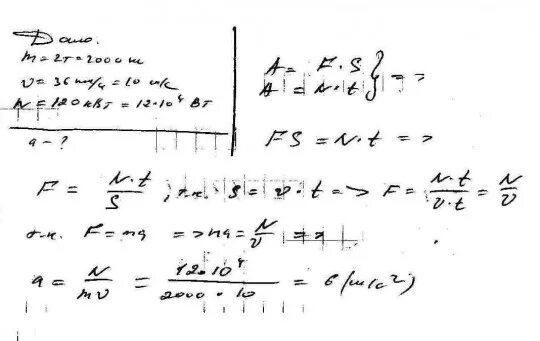 Дано.
m = 2т = 2000 кг
v = 36 км/ч = 10 м/с
N = 120 кВт = 12·10⁴ Вт
a - ?
A = F·S
A = N·t } =>
FS = N·t =>
F = N·t/S, т.к. S = v·t => F = N·t/v·t = N/v
т.к. F = ma => ma = N/v =>
a = N/mv = 12·10⁴/2000·10 = 6 (м/с²)